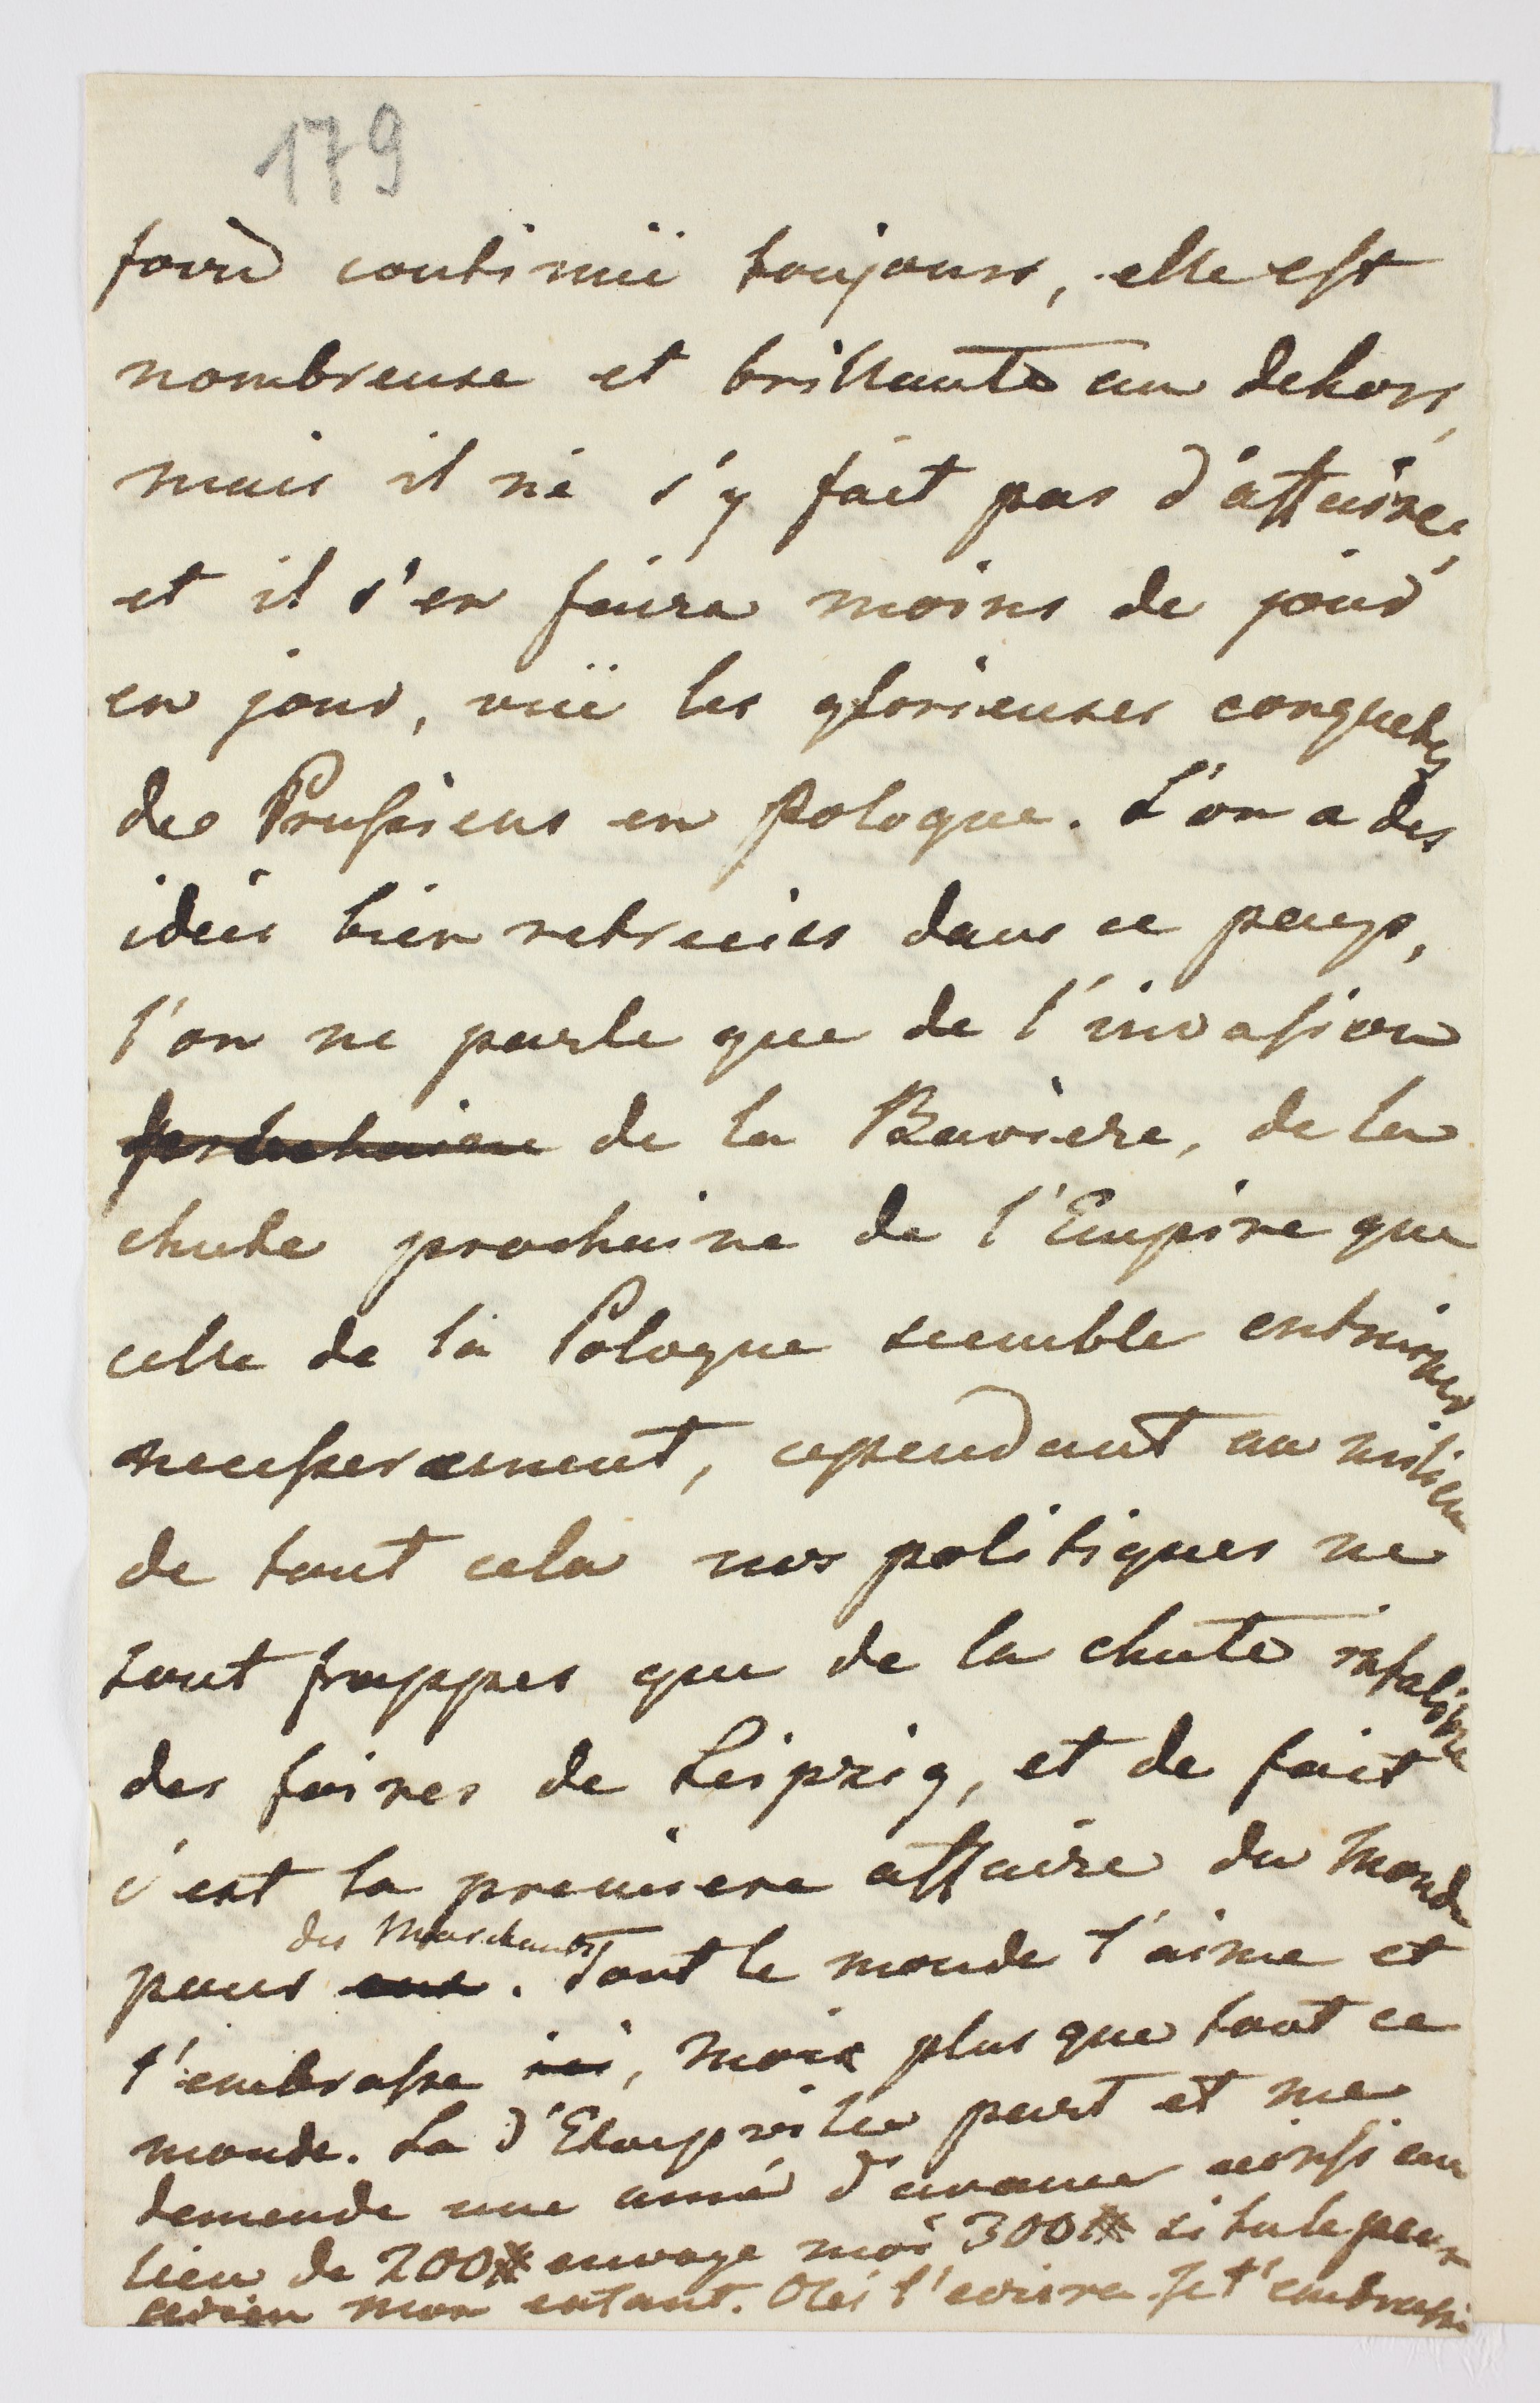 179
foire continuë toujours, elle est
nombreuse et brillante au dehors,
mais il ne s'y fait pas d'affaires,
et il s'en faira moins de jour
en jour, vuë les glorieuses conquetes
des Prussiens en Pologne. L'on a des
idées bien retrecies dans ce pays,
l'on ne parle que de l'invasion
prochaine de la Baviere, de la
chute prochaine de l'Empire que
celle de la Pologne semble entrainer
necesserement, cependant au milieu
de tout cela nos politiques ne
sont frappes que de la chute infalible
des foires de Leipzig, et de fait
c'est la premiere affaire du monde
des Marchants
pour eux. Tout le monde t'aime et
t'embrasse ici, moi plus que tout ce
monde. La d'Etoupville part et me
demende une anné d'avance ainsi au
lieu de 200# envoye moi 300# si tu le peux
adieu mon enfant. t'ecrira. Je t'embrasse